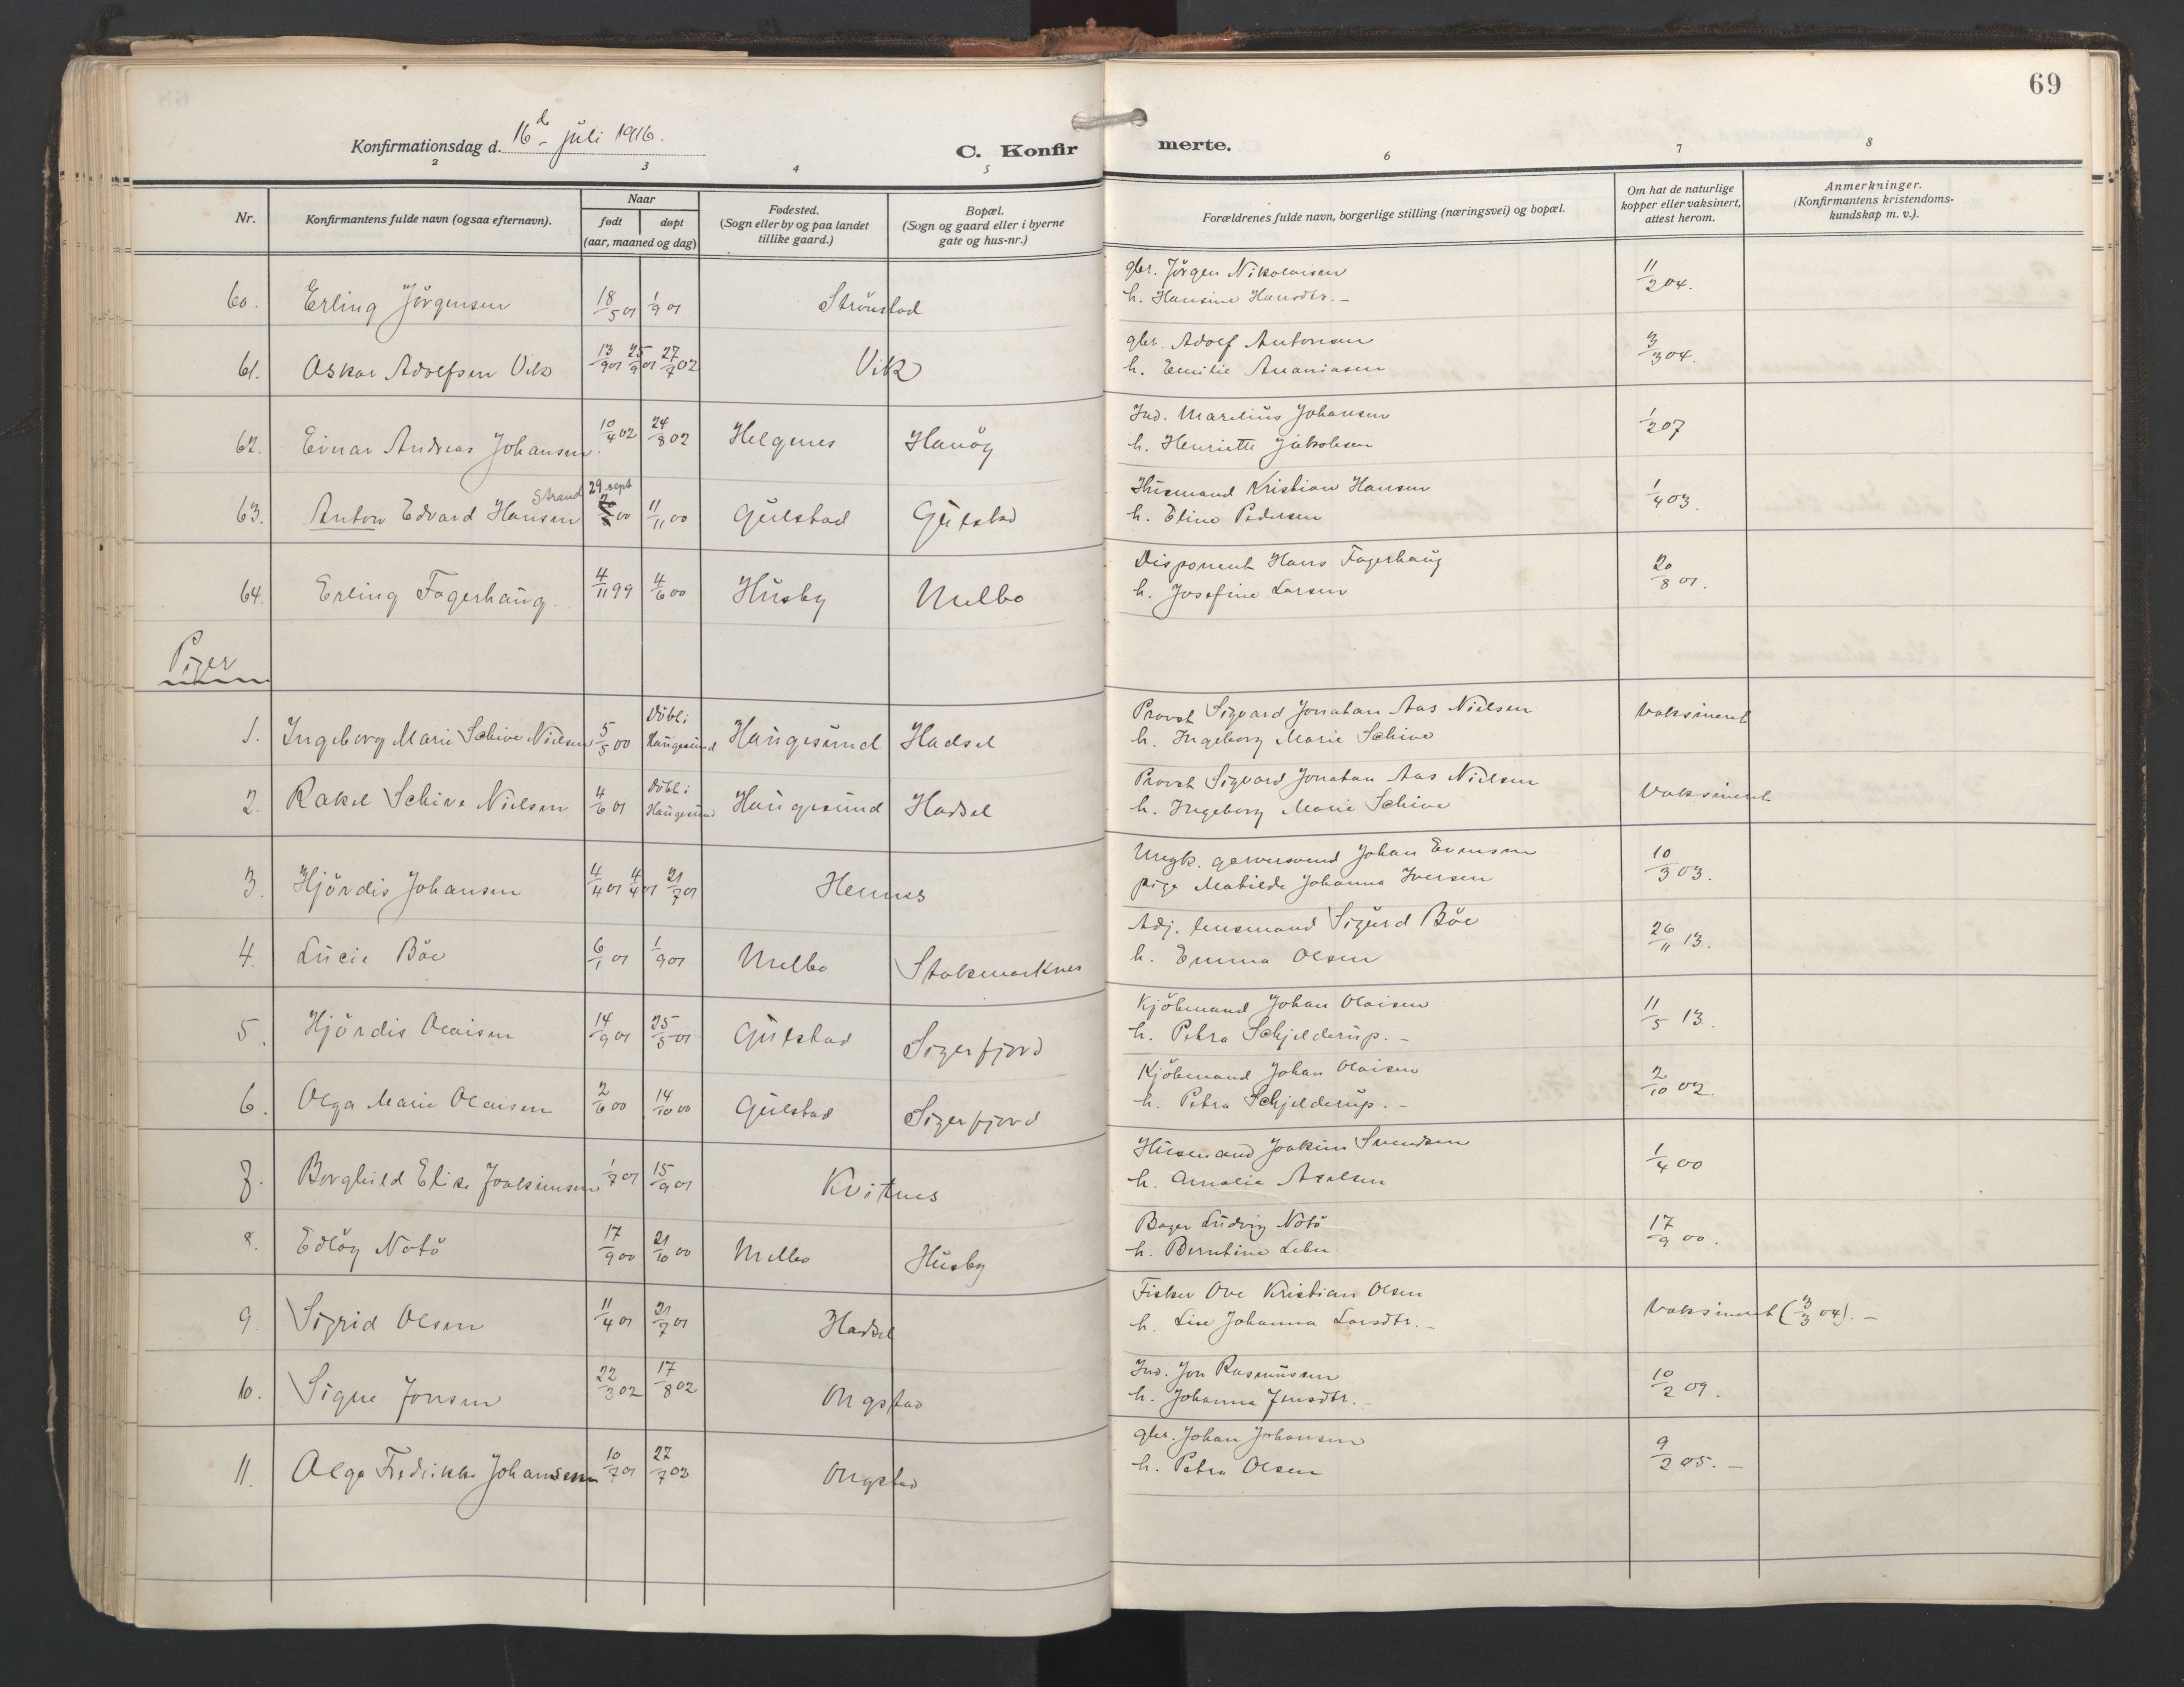 69
Konfirmationsdag d. 16de juli 1916.
C. Konfirmerte.
2 3 4 5 6 7 8
Nr. Konfirmantens fulde navn (ogsaa efternavn). Naar født døpt (aar, maaned og dag) Fødested. (Sogn eller by og paa landet tillike gaard.) Bopæl. (Sogn og gaard eller i byerne gate og hus-nr.) Forældrenes fulde navn, borgerlige stilling (næringsvei) og bopæl. Om hat de naturlige kopper eller vaksinert, attest herom. Anmerkninger. (Konfirmantens kristendoms-kundskap m. v.).
60. Erling Jörgensen 18/5 01 1/9 01 Strönstad gbr. Jörgen Nikolaisen 11/2 04.
h. Hansine Hansdtr. –
61. Oskar Adolfsen Vik 13/9 01 25/9 01 27/7 02 Vik gbr. Adolf Antonsen 3/3 04.
h. Emilie Ananiasen
62. Einar Andreas Johansen. 10/4 02 24/8 02 Helgenes Hanöy Ind. Marelius Johansen 1/2 07
h. Henriette Jakobsen
63. Anton Edvard Hansen Strand 29. sept 00 11/11 00 Gulstad Gulstad Husmand Kristian Hansen 1/4 03.
h. Eline Pedersen
64. Erling Fagerhaug. 4/11 99 4/6 00 Husby Melbo Disponent Hans Fagerhaug 20/8 01.
h. Josefine Larsen
Piger
1. Ingeborg Marie Schive Nielsen 5/5 00 Döbt i Haugesund Haugesund Hadsel Provst Sigvard Jonatan Aas Nielsen Vaksinert
h. Ingeborg Marie Schive
2. Rakel Schive Nielsen 4/6 01 Döbt i Haugesund Haugesund Hadsel Provst Sigvard Jonatan Aas Nielsen Vaksinert
h. Ingeborg Marie Schive
3. Hjördis Johansen 4/4 01 4/4 01 21/7 01 Hennes Ungk. garversvend Johan Evensen 10/3 03.
pige Matilde Johanna Iversen
4. Lucie Böe 6/1 01 1/9 01 Melbo Stokmarknes Adj. lensmand Sigurd Böe 26/11 13.
h. Emma Olsen
5. Hjördis Olaisen 14/9 01 25/5 01 Gulstad Sigerfjord Kjöbmand Johan Olaisen 11/5 13.
h. Petra Schjelderup. –
6. Olga Marie Olaisen 2/6 00 14/10 00 Gulstad Sigerfjord Kjöbmand Johan Olaisen 2/10 02.
h. Petra Schjelderup. –
7. Borghild Elise Joakimsen 1/7 01 15/9 01 Kvitnes Husmand Joakim Svendsen 1/4 00
h. Amalie Axelsen
8. Edlög Notö 17/9 00 21/10 00 Melbo Husby Bager Ludvig Notö 17/9 00.
h. Berntine
9. Sigrid Olsen 11/4 01 21/7 01 Hadsel Fisker Ove Kristian Olsen Vaksinert (3/3 04). –
h. Lise Johanna Larsdtr. –
10. Signe Jonsen 22/3 02 17/8 02 Ongstad Ind. Jon Rasmussen 10/2 09.
h. Johanna Jensdtr. –
11. Olga Fredrikke Johansen 10/7 01 27/7 02 Ongstad gbr. Johan Johansen 9/2 05. –
h. Petra Olsen